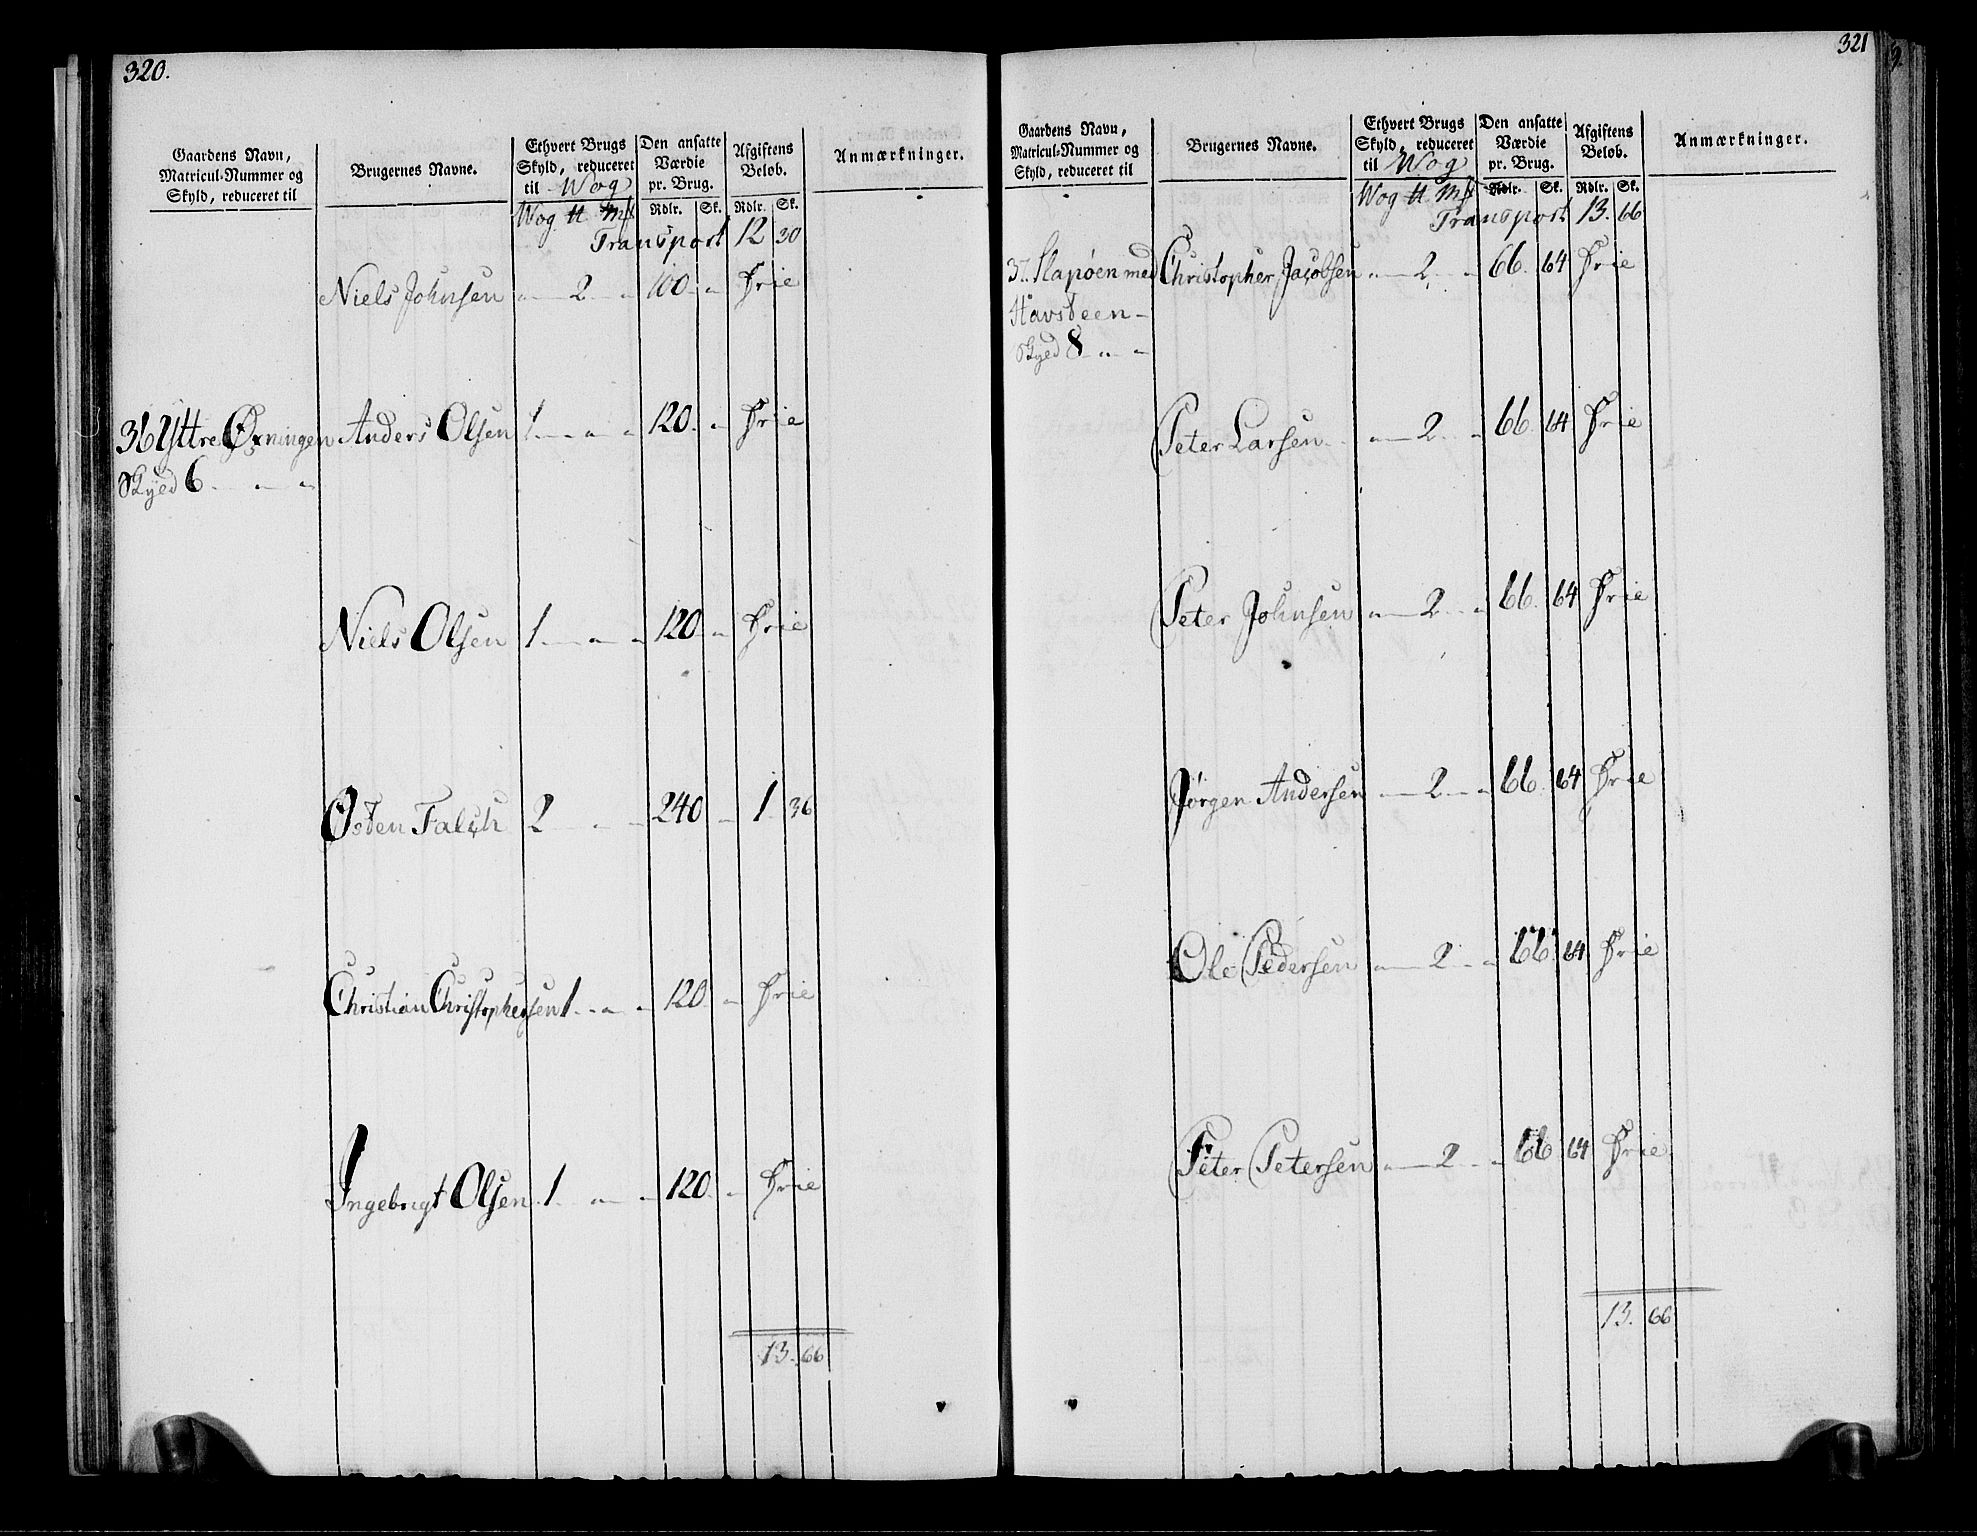 320.
Gaardens Navn, Matricul-Nummer og Skyld, reduceret til
Brugernes Navne.
Ethvert Brugs Skyld, reduceret til Wog
Den ansatte Værdie pr. Brug.
Afgiftens Beløb.
Anmærkninger.
Wog tt mk Rdlr. Sk. Rdlr. Sk.
Transport 12 30
Niels Johnsen " 2 " 100 " Frie
36 Yttre Øxningen Anders Olsen 1 " " 120 " Frie
Skyld 6 " "
Niels Olsen 1 " " 120 " Frie
Østen Falch 2 " " 240 " 1 36
Christian Christophersen 1 " " 120 " Frie
Ingebrigt Olsen 1 " " 120 " Frie
13. 66
321
Gaardens Navn, Matricul-Nummer og Skyld, reduceret til
Brugernes Navne.
Ethvert Brugs Skyld, reduceret til Wog
Den ansatte Værdie pr. Brug.
Afgiftens Beløb.
Anmærkninger.
Wog tt mk Rdlr. Sk. Rdlr. Sk.
Transport 13. 66
37. Slapøen med Christopher Jacobsen " 2 " 66 64 Frie
Havsteen
Skyld 8 " "
Peter Larsen " 2 " 66 64 Frie
Peter Johnsen " 2 " 66 64 Frie
Jørgen Andersen " 2 " 66 64 Frie
Ole Pedersen " 2 " 66 64 Frie
Peter Petersen " 2 " 66 64 Frie
13. 66